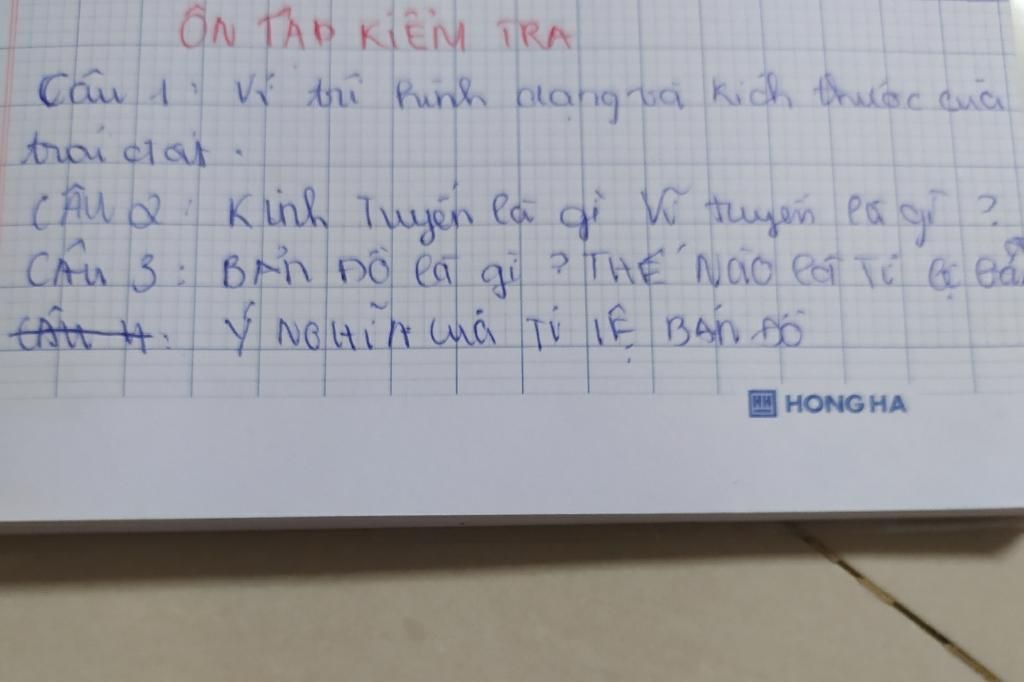 ÔN TẬP KIỂM TRA
Câu 1: Vị thí hình dạng và kích thước của
trái đất.
CÂU 2: Kinh Tuyến là gì Vĩ tuyến là gì?
CÂU 3: BẢN ĐỒ là gì? THẾ NÀO là Tỉ lệ bả
CÂU 4: Ý NGHĨA CỦA TỈ LỆ BẢN ĐỒ
HONG HA